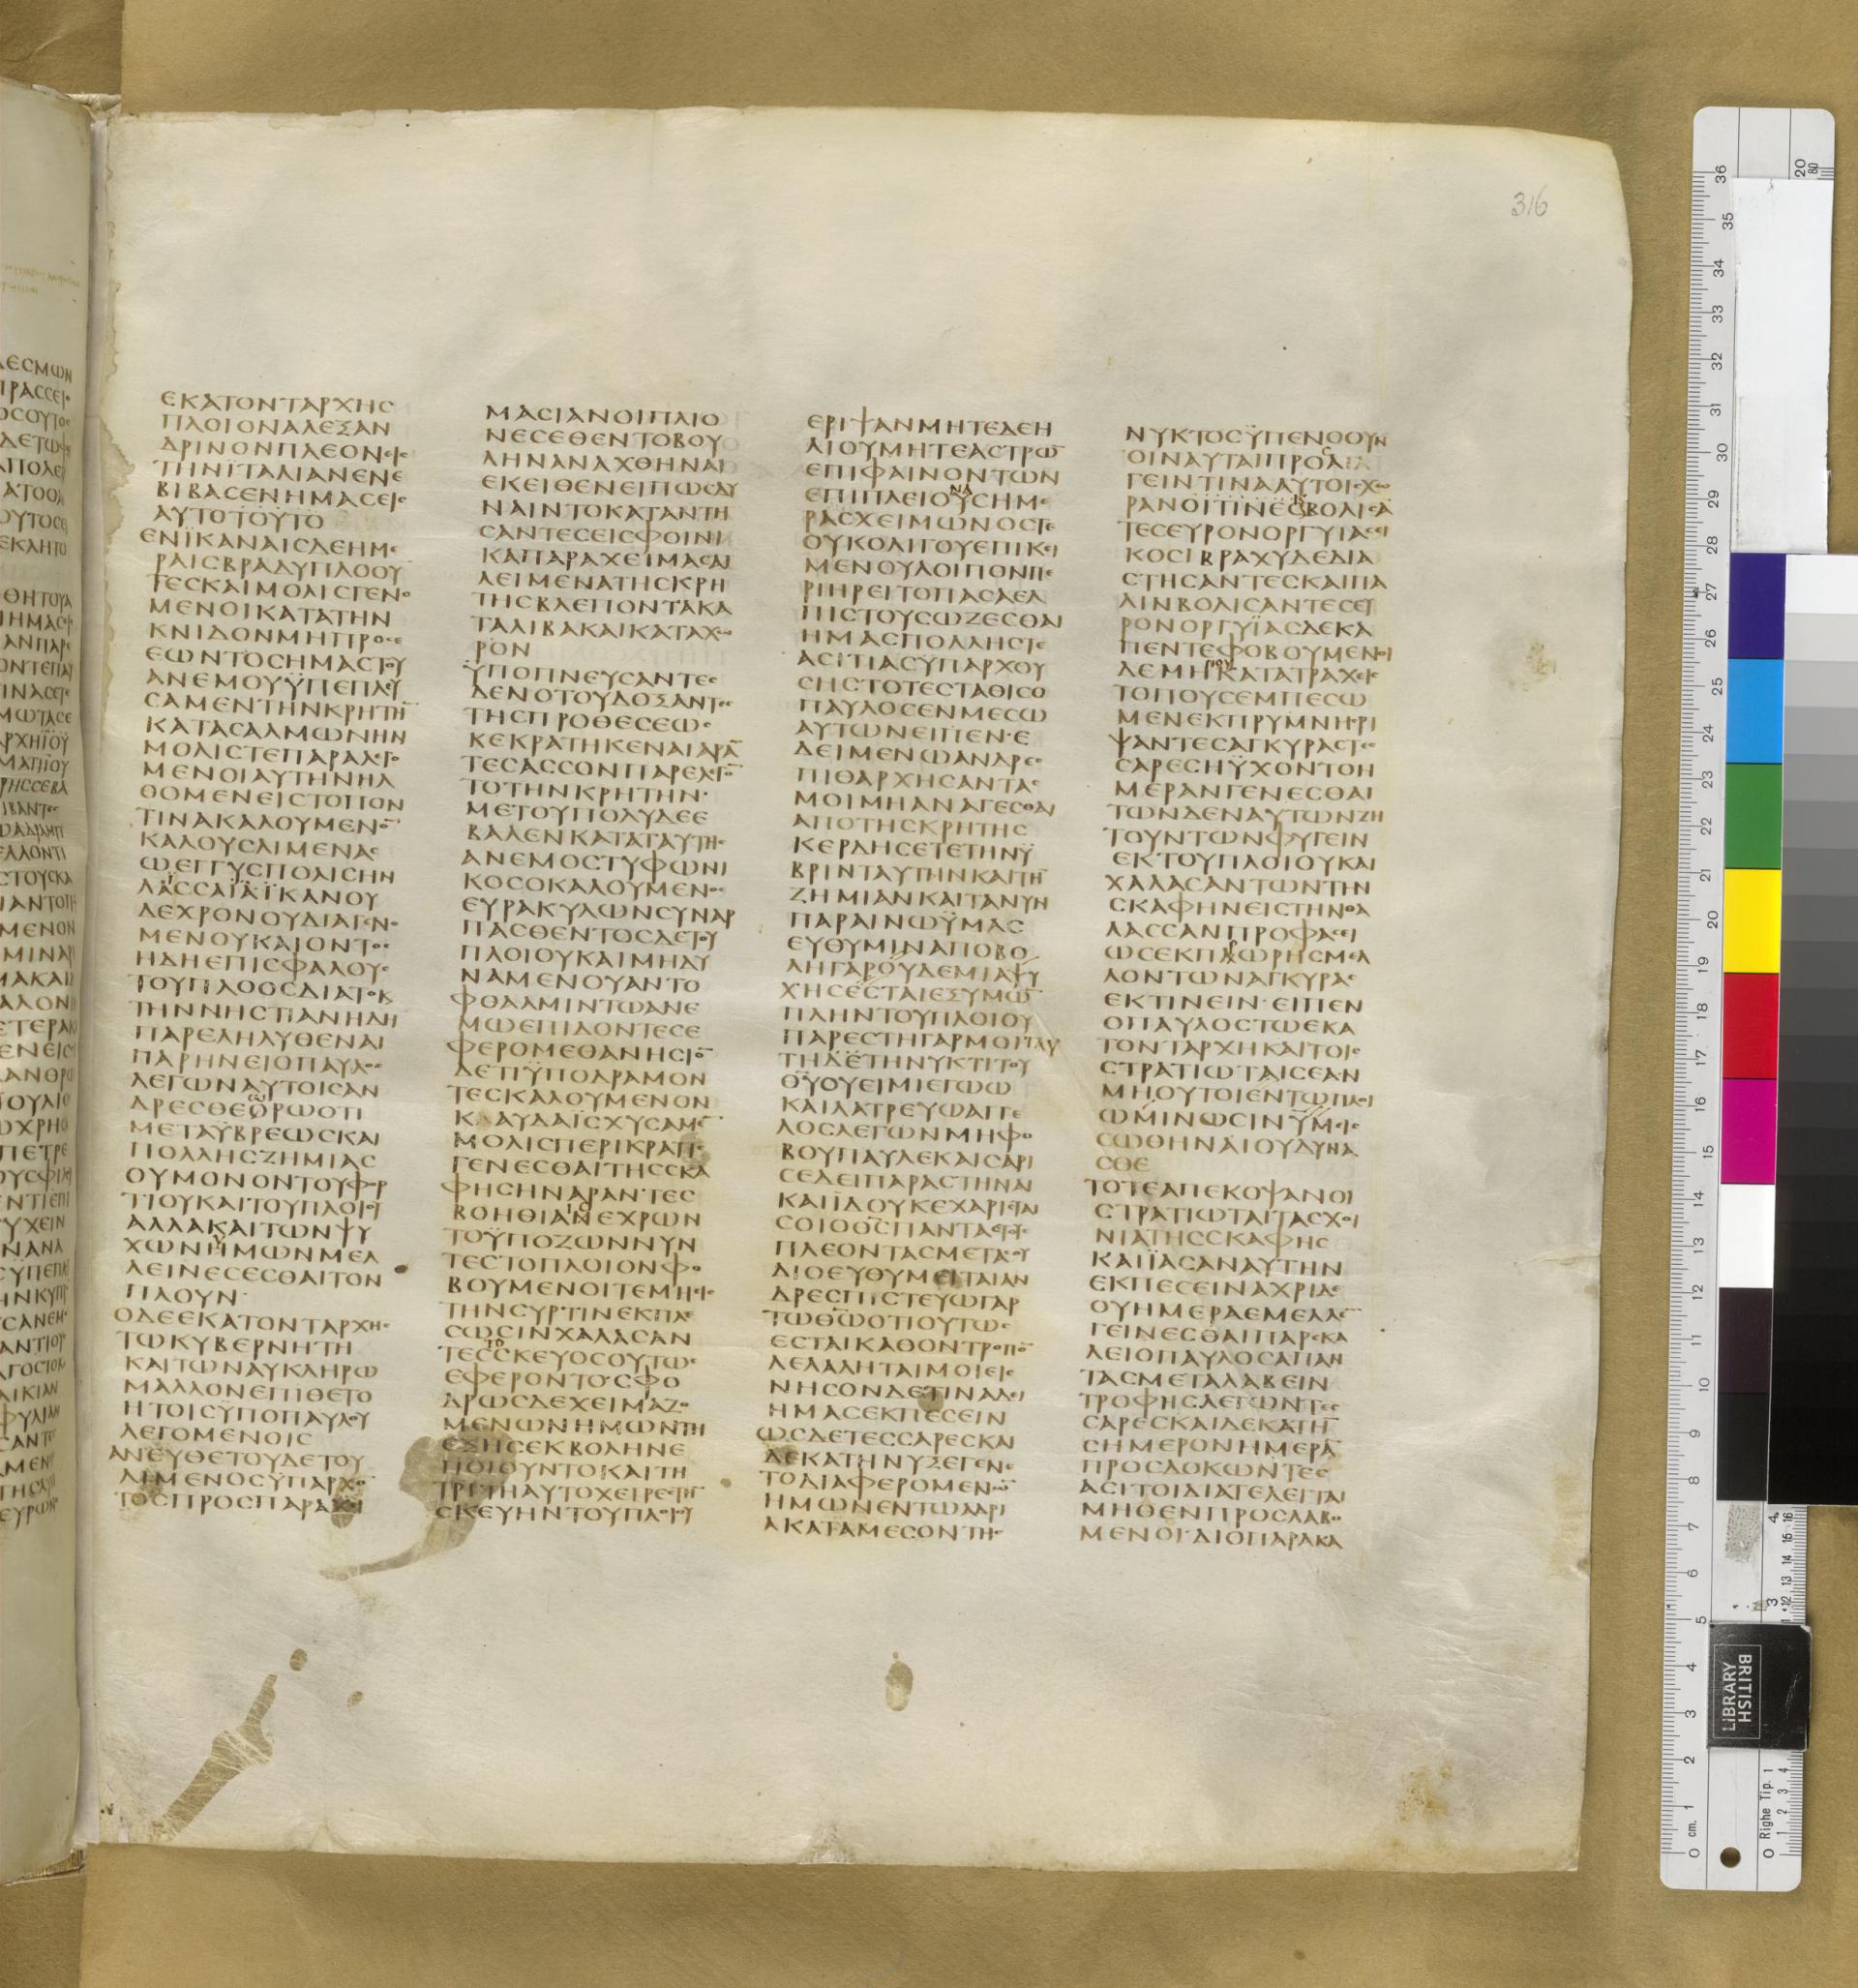 316
ΕΚΑΤΟΝΤΑΡΧΗϹ
ΠΛΟΙΟΝΑΛΕΞΑΝ
ΔΡΙΝΟΝΠΛΕΟΝΕΙϹ
ΤΗΝΪΤΑΛΙΑΝΕΝΕ
ΒΙΒΑϹΕΝΗΜΑϹΕΙϹ
ΑΥΤΟΤΟΥΤΟ
ΕΝΪΚΑΝΑΙϹΔΕΗΜΕ
ΡΑΙϹΒΡΑΔΥΠΛΟΟΥ
ΤΕϹΚΑΙΜΟΛΙϹΓΕΝΟ
ΜΕΝΟΙΚΑΤΑΤΗΝ
ΚΝΙΔΟΝΜΗΠΡΟϹΕ
ΕΩΝΤΟϹΗΜΑϹΤΟΥ
ΑΝΕΜΟΥΫΠΕΠΛΕΥ
ϹΑΜΕΝΤΗΝΚΡΗΤΗ̅
ΚΑΤΑϹΑΛΜΩΝΗΝ
ΜΟΛΙϹΤΕΠΑΡΑΛΕΓΟ
ΜΕΝΟΙΑΥΤΗΝΗΛ
ΘΟΜΕΝΕΙϹΤΟΠΟΝ
ΤΙΝΑΚΑΛΟΥΜΕΝΟ̅
ΚΑΛΟΥϹΛΙΜΕΝΑϹ
ΩΕΓΓΥϹΠΟΛΙϹΗΝ
ΛΑϹϹΑΪΑΪΚΑΝΟΥ
ΔΕΧΡΟΝΟΥΔΙΑΓΕΝΟ
ΜΕΝΟΥΚΑΙΟΝΤΟϹ
ΗΔΗΕΠΙϹΦΑΛΟΥϹ
ΤΟΥΠΛΟΟϹΔΙΑΤΟΚ
ΤΗΝΝΗϹΤΙΑΝΗΔΗ
ΠΑΡΕΛΗΛΥΘΕΝΑΙ
ΠΑΡΗΝΕΙΟΠΑΥΛΟϹ
ΛΕΓΩΝΑΥΤΟΙϹΑΝ
ΔΡΕϹΘΕΟΡΩΟΤΙ
ΜΕΤΑΫΒΡΕΩϹΚΑΙ
ΠΟΛΛΗϹΖΗΜΙΑϹ
ΟΥΜΟΝΟΝΤΟΥΦΟΡ
ΤΙΟΥΚΑΙΤΟΥΠΛΟΙΟΥ
ΑΛΛΑΚΑΙΤΩΝΨΥ
ΧΩΝΗΜΩΝΜΕΛ
ΛΕΙΝΕϹΕϹΘΑΙΤΟΝ
ΠΛΟΥΝ
ΟΔΕΕΚΑΤΟΝΤΑΡΧΗϹ
ΤΩΚΥΒΕΡΝΗΤΗ
ΚΑΙΤΩΝΑΥΚΛΗΡΩ
ΜΑΛΛΟΝΕΠΙΘΕΤΟ
ΗΤΟΙϹΫΠΟΠΑΥΛΟΥ
ΛΕΓΟΜΕΝΟΙϹ
ΑΝΕΥΘΕΤΟΥΔΕΤΟΥ
ΛΙΜΕΝΟϹΫΠΑΡΧΟ̅
ΤΟϹΠΡΟϹΠΑΡΑΧΙ
ΜΑϹΙΑΝΟΙΠΛΙΟ
ΝΕϹΕΘΕΝΤΟΒΟΥ
ΛΗΝΑΝΑΧΘΗΝΑΙ
ΕΚΕΙΘΕΝΕΙΠΩϹΔΥ
ΝΑΙΝΤΟΚΑΤΑΝΤΗ
ϹΑΝΤΕϹΕΙϹΦΟΙΝΙ
ΚΑΠΑΡΑΧΕΙΜΑϹΑΙ
ΛΕΙΜΕΝΑΤΗϹΚΡΗ
ΤΗϹΒΛΕΠΟΝΤΑΚΑ
ΤΑΛΙΒΑΚΑΙΚΑΤΑΧΩ
ΡΟΝ
ΫΠΟΠΝΕΥϹΑΝΤΕϹ
ΔΕΝΟΤΟΥΔΟΞΑΝΤΕϹ
ΤΗϹΠΡΟΘΕϹΕΩϹ
ΚΕΚΡΑΤΗΚΕΝΑΙΑΡΑ̅
ΤΕϹΑϹϹΟΝΠΑΡΕΛΕΓΟ̅
ΤΟΤΗΝΚΡΗΤΗΝ
ΜΕΤΟΥΠΟΛΥΔΕΕ
ΒΑΛΕΝΚΑΤΑΤΑΥΤΗϹ
ΑΝΕΜΟϹΤΥΦΩΝΙ
ΚΟϹΟΚΑΛΟΥΜΕΝΟϹ
ΕΥΡΑΚΥΛΩΝϹΥΝΑΡ
ΠΑϹΘΕΝΤΟϹΔΕΤΟΥ
ΠΛΟΙΟΥΚΑΙΜΗΔΥ
ΝΑΜΕΝΟΥΑΝΤΟ
ΦΘΑΛΜΙΝΤΩΑΝΕ
ΜΩΕΠΙΔΟΝΤΕϹΕ
ΦΕΡΟΜΕΘΑΝΗϹΙΟ̅
ΔΕΤΙΫΠΟΔΡΑΜΟΝ
ΤΕϹΚΑΛΟΥΜΕΝΟΝ
ΚΛΑΥΔΑΪϹΧΥϹΑΜΕ̅
ΜΟΛΙϹΠΕΡΙΚΡΑΤΙϹ
ΓΕΝΕϹΘΑΙΤΗϹϹΚΑ
ΦΗϹΗΝΑΡΑΝΤΕϹ
ΒΟΗΘΙΑΝΕΧΡΩΝ
ΤΟΫΠΟΖΩΝΝΥΝ
ΤΕϹΤΟΠΛΟΙΟΝΦΟ
ΒΟΥΜΕΝΟΙΤΕΜΗΕΙϹ
ΤΗΝϹΥΡΤΙΝΕΚΠΕ
ϹΩϹΙΝΧΑΛΑϹΑΝ
ΤΕϹϹΚΕΥΟϹΟΥΤΩϹ
ΕΦΕΡΟΝΤΟϹΦΟ
ΔΡΩϹΔΕΧΕΙΜΑΖΟ
ΜΕΝΩΝΗΜΩΝΤΗ
ΕΞΗϹΕΚΒΟΛΗΝΕ
ΠΟΙΟΥΝΤΟΚΑΙΤΗ
ΤΡΙΤΗΑΥΤΟΧΕΙΡΕϹΤΗ̅
ϹΚΕΥΗΝΤΟΥΠΛΟΙΟΥ
ΕΡΙΨΑΝΜΗΤΕΔΕΗ
ΛΙΟΥΜΗΤΕΑϹΤΡΩ̅
ΕΠΙΦΑΙΝΟΝΤΩΝ
ΕΠΙΠΛΕΙΟΥϹΗΜΕ
ΡΑϹΧΕΙΜΩΝΟϹΤΕ
ΟΥΚΟΛΙΓΟΥΕΠΙΚΕΙ
ΜΕΝΟΥΛΟΙΠΟΝΠΕ
ΡΙΗΡΕΙΤΟΠΑϹΑΕΛ
ΠΙϹΤΟΥϹΩΖΕϹΘΑΙ
ΗΜΑϹΠΟΛΛΗϹΤΕ
ΑϹΙΤΙΑϹΫΠΑΡΧΟΥ
ϹΗϹΤΟΤΕϹΤΑΘΙϹΟ
ΠΑΥΛΟϹΕΝΜΕϹΩ
ΑΥΤΩΝΕΙΠΕΝΕ
ΔΕΙΜΕΝΩΑΝΔΡΕϹ
ΠΙΘΑΡΧΗϹΑΝΤΑϹ
ΜΟΙΜΗΑΝΑΓΕϹΘΑΙ
ΑΠΟΤΗϹΚΡΗΤΗϹ
ΚΕΡΔΗϹΕΤΕΤΗΝΫ
ΒΡΙΝΤΑΥΤΗΝΚΑΙΤΗ̅
ΖΗΜΙΑΝΚΑΙΤΑΝΥΝ
ΠΑΡΑΙΝΩΫΜΑϹ
ΕΥΘΥΜΙΝΑΠΟΒΟ
ΛΗΓΑΡΟΥΔΕΜΙΑΨΥ
ΧΗϹΕϹΤΑΙΕΞΥΜΩ̅
ΠΛΗΝΤΟΥΠΛΟΙΟΥ
ΠΑΡΕϹΤΗΓΑΡΜΟΙΤΑΥ
ΤΗΔΕΤΗΝΥΚΤΙΤΟΥ
Θ̅Υ̅ΟΥΕΙΜΙΕΓΩΩ
ΚΑΙΛΑΤΡΕΥΩΑΓΓΕ
ΛΟϹΛΕΓΩΝΜΗΦΟ
ΒΟΥΠΑΥΛΕΚΑΙϹΑΡΙ
ϹΕΔΕΙΠΑΡΑϹΤΗΝΑΙ
ΚΑΙΪΔΟΥΚΕΧΑΡΙϹΤΑΙ
ϹΟΙΟΘ̅Ϲ̅ΠΑΝΤΑϹΤΟΥϹ
ΠΛΕΟΝΤΑϹΜΕΤΑϹΟΥ
ΔΙΟΕΥΘΥΜΕΙΤΑΙΑΝ
ΔΡΕϹΠΙϹΤΕΥΩΓΑΡ
ΤΩΘ̅Ω̅ΟΤΙΟΥΤΩϹ
ΕϹΤΑΙΚΑΘΟΝΤΡΟΠΟ̅
ΛΕΛΑΛΗΤΑΙΜΟΙΕΙϹ
ΝΗϹΟΝΔΕΤΙΝΑΔΕΙ
ΗΜΑϹΕΚΠΕϹΕΙΝ
ΩϹΔΕΤΕϹϹΑΡΕϹΚΑΙ
ΔΕΚΑΤΗΝΥΞΕΓΕΝΕ
ΤΟΔΙΑΦΕΡΟΜΕΝΩ̅
ΗΜΩΝΕΝΤΩΑΔΡΙ
ΑΚΑΤΑΜΕϹΟΝΤΗϹ
ΝΥΚΤΟϹΫΠΕΝΟΟΥΝ
ΟΙΝΑΥΤΑΙΠΡΟΑ
ΓΕΙΝΤΙΝΑΑΥΤΟΙϹΧΩ
ΡΑΝΟΙΤΙΝΕϹΒΟΛΙϹΑ̅
ΤΕϹΕΥΡΟΝΟΡΓΥΙΑϹΕΙ
ΚΟϹΙΒΡΑΧΥΔΕΔΙΑ
ϹΤΗϹΑΝΤΕϹΚΑΙΠΑ
ΛΙΝΒΟΛΙϹΑΝΤΕϹΕΥ
ΡΟΝΟΡΓΥΪΑϹΔΕΚΑ
ΠΕΝΤΕΦΟΒΟΥΜΕΝΟΙ
ΔΕΜΗΠΟΥΚΑΤΑΤΡΑΧΕΙϹ
ΤΟΠΟΥϹΕΜΠΕϹΩ
ΜΕΝΕΚΠΡΥΜΝΗϹΡΙ
ΨΑΝΤΕϹΑΓΚΥΡΑϹΤΕϹ
ϹΑΡΕϹΗΫΧΟΝΤΟΗ
ΜΕΡΑΝΓΕΝΕϹΘΑΙ
ΤΩΝΔΕΝΑΥΤΩΝΖΗ
ΤΟΥΝΤΩΝΦΥΓΕΙΝ
ΕΚΤΟΥΠΛΟΙΟΥΚΑΙ
ΧΑΛΑϹΑΝΤΩΝΤΗΝ
ϹΚΑΦΗΝΕΙϹΤΗΝΘΑ
ΛΑϹϹΑΝΠΡΟΦΑϹΕΙ
ΩϹΕΚΠΡΩΡΗϹΜΕΛ
ΛΟΝΤΩΝΑΓΚΥΡΑϹ
ΕΚΤΙΝΕΙΝΕΙΠΕΝ
ΟΠΑΥΛΟϹΤΩΕΚΑ
ΤΟΝΤΑΡΧΗΚΑΙΤΟΙϹ
ϹΤΡΑΤΙΩΤΑΙϹΕΑΝ
ΜΗΟΥΤΟΙΕΝΤΩΠΛΟΙ
ΩΜΙΝΩϹΙΝΫΜΕΙϹ
ϹΩΘΗΝΑΙΟΥΔΥΝΑ
ϹΘΕ
ΤΟΤΕΑΠΕΚΟΨΑΝΟΙ
ϹΤΡΑΤΙΩΤΑΙΤΑϹΧΟΙ
ΝΙΑΤΗϹϹΚΑΦΗϹ
ΚΑΙΪΑϹΑΝΑΥΤΗΝ
ΕΚΠΕϹΕΙΝΑΧΡΙΔΕ
ΟΥΗΜΕΡΑΕΜΕΛΛΕ̅
ΓΕΙΝΕϹΘΑΙΠΑΡΕΚΑ
ΛΕΙΟΠΑΥΛΟϹΑΠΑΝ
ΤΑϹΜΕΤΑΛΑΒΕΙΝ
ΤΡΟΦΗϹΛΕΓΩΝΤΕϹ
ϹΑΡΕϹΚΑΙΔΕΚΑΤΗ̅
ϹΗΜΕΡΟΝΗΜΕΡΑ̅
ΠΡΟϹΔΟΚΩΝΤΕϹ
ΑϹΙΤΟΙΔΙΑΤΕΛΕΙΤΑΙ
ΜΗΘΕΝΠΡΟϹΛΑΒΟ
ΜΕΝΟΙΔΙΟΠΑΡΑΚΑ